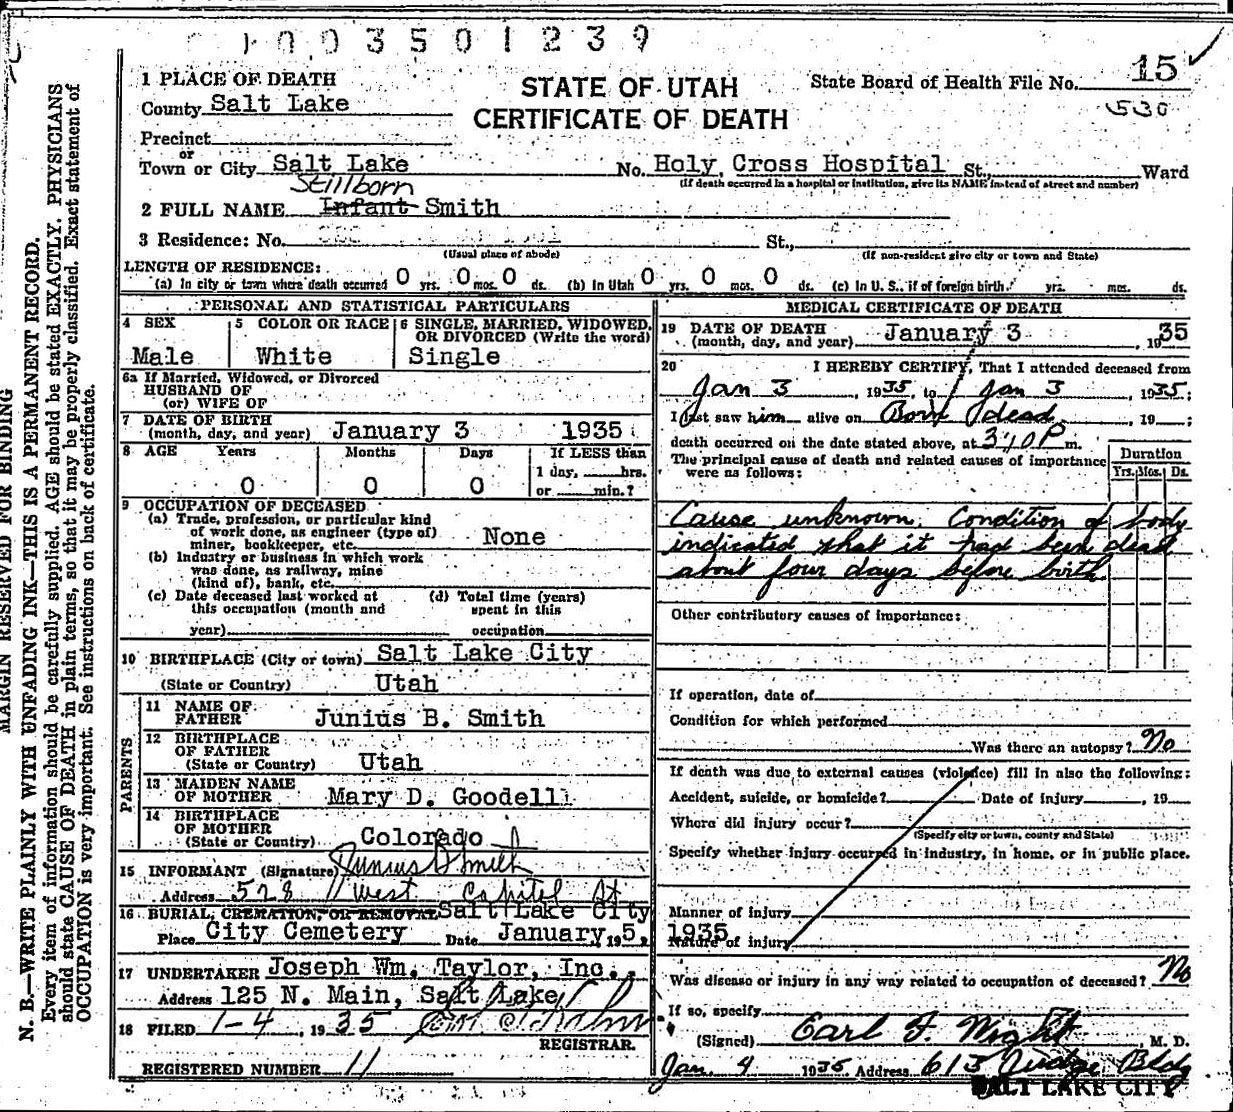 003501239
1 PLACE OF DEATH
County Salt Lake
STATE OF UTAH
CERTIFICATE OF DEATH
State Board of Health File No. 15
530
Precinct
or
Town or City Salt Lake No. Holy Cross Hospital St., Ward
(If death occurred in a hospital or institution, give its NAME instead of street and number)
Stillborn
2 FULL NAME Infant Smith
3 Residence: No. St.,
(Usual place of abode) (If non-resident give city or town and State)
LENGTH OF RESIDENCE:
(a) In city or town where death occurred 0 yrs. 0 mos. 0 ds. (b) In Utah 0 yrs. 0 mos. 0 ds. (c) In U. S. if of foreign birth yrs. mos. ds.
PERSONAL AND STATISTICAL PARTICULARS
4 SEX Male
5 COLOR OR RACE White
6 SINGLE, MARRIED, WIDOWED, OR DIVORCED (Write the word) Single
6a If Married, Widowed, or Divorced
HUSBAND OF
(or) WIFE OF
7 DATE OF BIRTH
(month, day, and year) January 3 1935
8 AGE Years Months Days If LESS than
1 day, hrs.
0 0 0 or min.?
9 OCCUPATION OF DECEASED
(a) Trade, profession, or particular kind
of work done, as engineer (type of)
miner, bookkeeper, etc. None
(b) Industry or business in which work
was done, as railway, mine
(kind of), bank, etc.
(c) Date deceased last worked at
this occupation (month and
year)
(d) Total time (years)
spent in this
occupation
10 BIRTHPLACE (City or town) Salt Lake City
(State or Country) Utah
PARENTS
11 NAME OF
FATHER Junius B. Smith
12 BIRTHPLACE
OF FATHER
(State or Country) Utah
13 MAIDEN NAME
OF MOTHER Mary D. Goodell
14 BIRTHPLACE
OF MOTHER
(State or Country) Colorado
15 INFORMANT (Signature) Junius B Smith
Address 528 West Capitol St
16 BURIAL, CREMATION, OR REMOVAL Salt Lake City
Place City Cemetery Date January 5, 1935
17 UNDERTAKER Joseph Wm. Taylor, Inc.
Address 125 N. Main, Salt Lake
18 FILED 1-4, 1935
REGISTRAR.
REGISTERED NUMBER 11
MEDICAL CERTIFICATE OF DEATH
19 DATE OF DEATH
(month, day, and year) January 3, 1935
20 I HEREBY CERTIFY, That I attended deceased from
Jan 3, 1935, to Jan 3, 1935;
I last saw him alive on Born dead, 19 ;
death occurred on the date stated above, at 3:10 P m.
The principal cause of death and related causes of importance
were as follows:
Duration
Yrs. Mos. Ds.
Cause unknown. Condition of body
indicated that it had been dead
about four days before birth
Other contributory causes of importance:
If operation, date of
Condition for which performed
Was there an autopsy? No
If death was due to external causes (violence) fill in also the following:
Accident, suicide, or homicide? Date of injury , 19
Where did injury occur?
(Specify city or town, county and State)
Specify whether injury occurred in industry, in home, or in public place.
Manner of injury
Nature of injury
Was disease or injury in any way related to occupation of deceased? No
If so, specify
(Signed) Earl F. Wight, M. D.
Jan. 4 1935 Address 613 Judge Bldg
SALT LAKE CITY
MARGIN RESERVED FOR BINDING
N. B.—WRITE PLAINLY WITH UNFADING INK—THIS IS A PERMANENT RECORD.
Every item of information should be carefully supplied. AGE should be stated EXACTLY. PHYSICIANS
should state CAUSE OF DEATH in plain terms, so that it may be properly classified. Exact statement of
OCCUPATION is very important. See instructions on back of certificate.